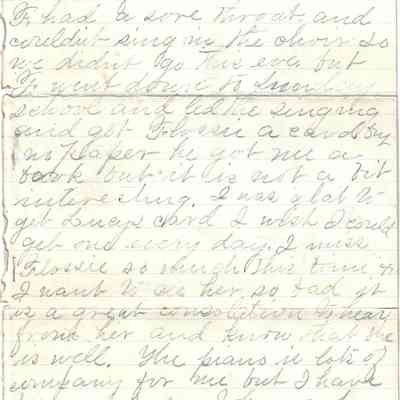 I had a sore throat and
couldn't sing in the choir so
we didn't go this eve. but
I went down to Sunday
school and led the singing
and got Flossie a card but
no Paper he got me a
book but it is not a bit
interesting. I was glad to
get Lucy's card I wish I could
get one every day. I miss
Flossie so much this time &
I want to see her so bad it
is a great consolation to hear
from her and know that she
is well. The piano is lots of
company for me but I have